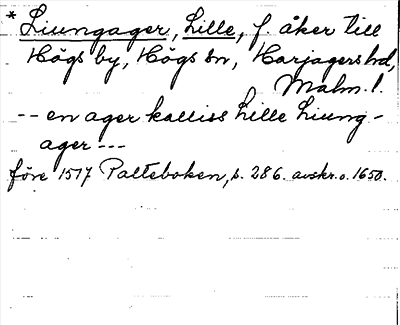 * Liungager, Lille, f. åker till
Högs by, Högs sn, Harjagers hd,
Malm. l.
-- en ager kalliss Lille Liung-
ager ---
före 1517 Palteboken, s. 286. avskr. o. 1650.